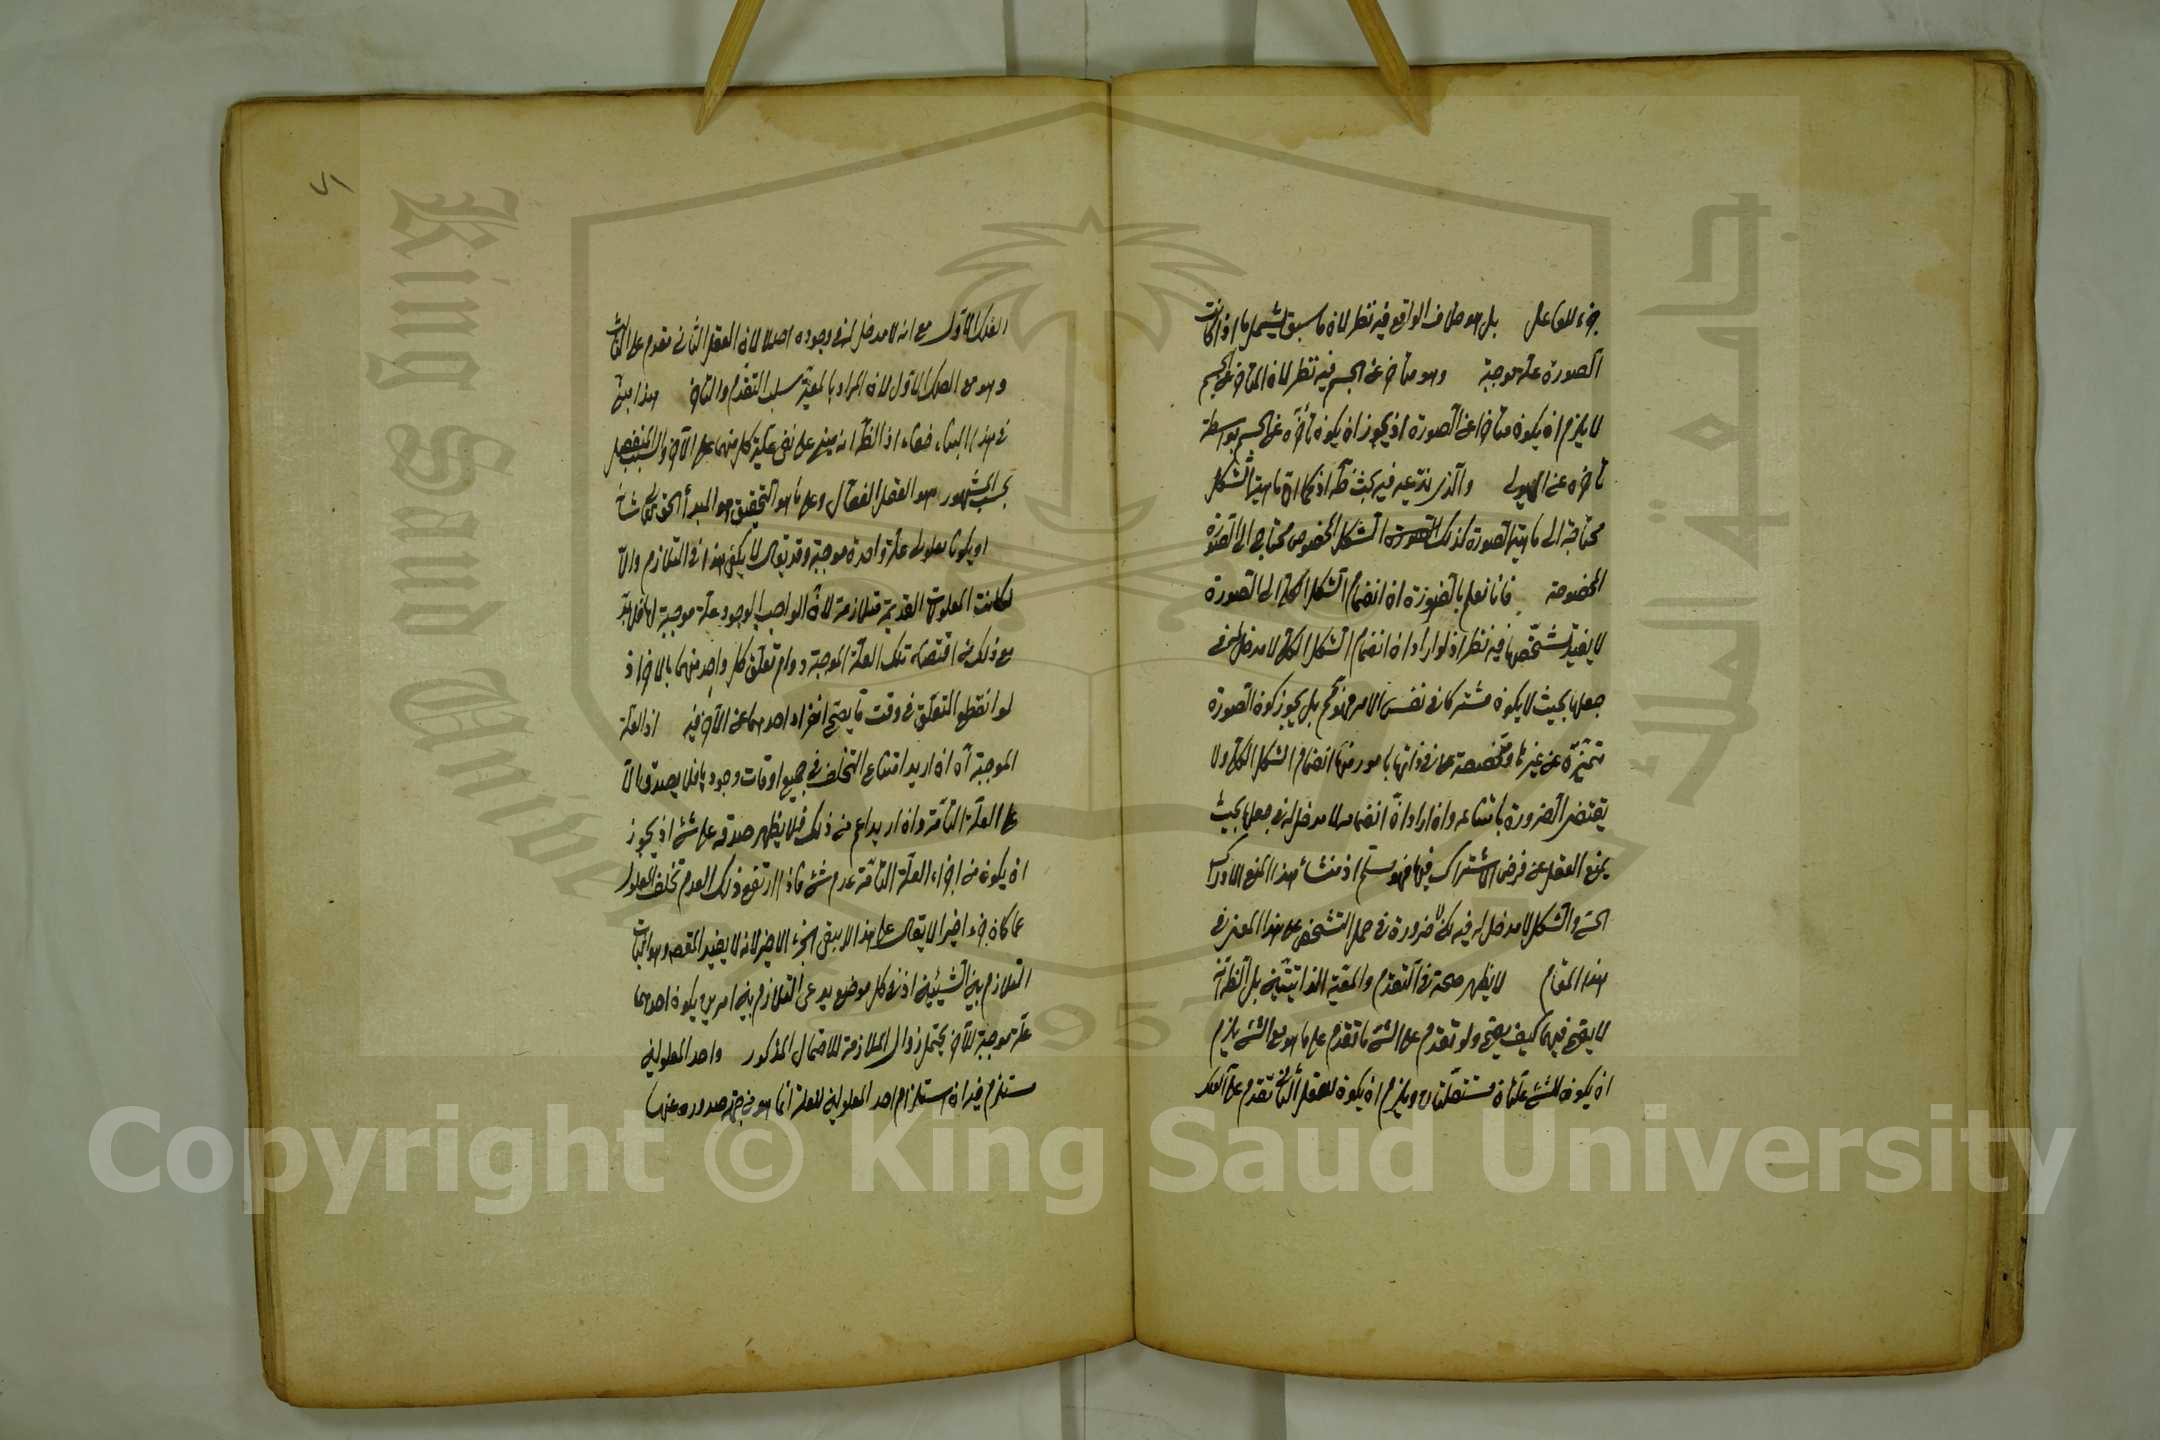 جزء للفاعل بل هو خلاف الواقع فيه نظر لان ما سبق يشمل ما اذا كانت
الصورة علة موجبة وهو متأخر عن الجسم فيه نظر لان المتأخر عن الجسم
لا يلزم ان يكون متأخرا عن الصورة اذ يجوز ان يكون تأخره عن الجسم بواسطة
تأخره عن الهيولى والذي ندعيه فيه بحث ظ اذ كما ان ماهية الشكل
محتاجة الى ماهية الصورة كذلك الشكل المخصوص محتاج الى الصورة
المخصوصة فانا نعلم بالضرورة ان انضمام الشكل الكلي الى الصورة
لا يفيد تشخصها فيه نظر اذ لو اراد ان انضمام الشكل الكلي لا مدخل له في
جعلها بحيث لا يكون مشتركا في نفس الامر فهو مم بل يجوز كون الصورة
متميزة عن غيرها بامور منها انضمام الشكل الكلي ولا
يقتضي الضرورة بامتناعه وان اراد ان انضمامه لا مدخل له في جعلها بحيث
يمنع العقل عن فرض الاشتراك فيها فهو مسلم اذ منشأ هذا المنع الادراك
الحسي والشكل لا مدخل له فيه لكن لا ضرورة في حمل التشخص على هذا المعنى في
هذا المقام لا يظهر صحته في التقدم والمعية الذاتيتين بل الظ انه
لا يصح فيهما كيف يصح ولو تقدم على الشئ ما تقدم على ما هو مع الشئ يلزم
ان يكون للشئ علتان مستقلتان ويلزم ان يكون للعقل الثاني تقدم على الفلك
الفلك الاول مع انه لا مدخل له في وجوده اصلا لان العقل الثاني مقدم على الثالث
وهو مع الفلك الاول لان المراد بالمعية سلب التقدم والتأخر هذا مبني
في هذا البناء خفاء اذ الظ انه مبني على نفي علية كل منهما على الاخر والسبب المنفصل
بحسب المشهور هو العقل الفعال وعلى ما هو التحقيق هو المبدأ الحق تعالى شأنه
او يكونا معلولي علة واحدة موجبة وقد يقال لا يكفي هذا في التلازم والا
لكانت المعلولات القديمة متلازمة لان الواجب الوجود علة موجبة لها فلا بد
مع ذلك من اقتضاء تلك العلة الموجبة دوام تعلق كل واحد منهما بالاخر اذ
لو انقطع التعلق في وقت ما يصح انفراد احدهما عن الآخر فيه اذ العلة
الموجبة اه ان اريد امتناع التخلف في جميع اوقات وجودها فلا يصدق الا
على العلة التامة وان اريد اعم من ذلك فلا يظهر صدقه على شئ اذ يجوز
ان يكون من اجزاء العلة التامة عدم شئ فاذا ارتفع ذلك العدم تخلف المعلول
عما كان جزء اخيرا لا يقال على هذا لا يبقى الجزء الاخير لانه لا يفيد المقصد وهو اثبات
التلازم بين الشيئين اذ في كل موضع يدعى التلازم بين امرين يكون احدهما
علة موجبة للآخر يحتمل زوال الملازمة للاحتمال المذكور واحد المعلولين
مستلزم فيه ان استلزام احد المعلولين للعلة انما هو من جهة صدوره عنها
٧١
King Saud University
جامعة الملك
1957
Copyright © King Saud University